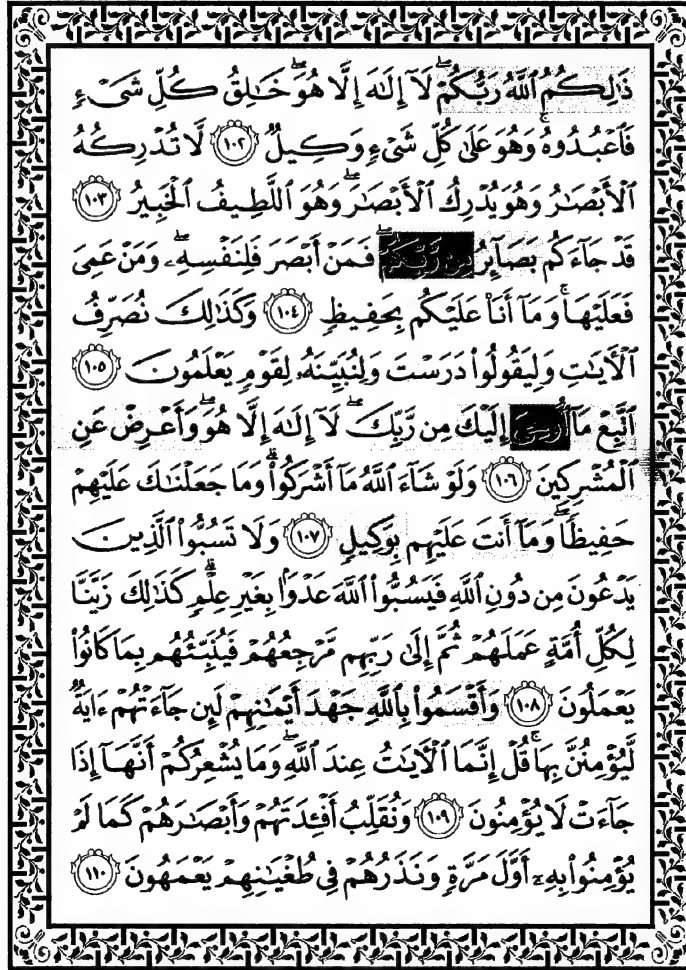 ذَٰلِكُمُ ٱللَّهُ رَبُّكُمْ ۖ لَآ إِلَٰهَ إِلَّا هُوَ ۖ خَٰلِقُ كُلِّ شَىْءٍ
فَٱعْبُدُوهُ ۚ وَهُوَ عَلَىٰ كُلِّ شَىْءٍ وَكِيلٌ ۝١٠٢ لَّا تُدْرِكُهُ
ٱلْأَبْصَٰرُ وَهُوَ يُدْرِكُ ٱلْأَبْصَٰرَ ۖ وَهُوَ ٱللَّطِيفُ ٱلْخَبِيرُ ۝١٠٣
قَدْ جَآءَكُم بَصَآئِرُ مِن رَّبِّكُمْ ۖ فَمَنْ أَبْصَرَ فَلِنَفْسِهِۦ ۖ وَمَنْ عَمِىَ
فَعَلَيْهَا ۚ وَمَآ أَنَا۠ عَلَيْكُم بِحَفِيظٍ ۝١٠٤ وَكَذَٰلِكَ نُصَرِّفُ
ٱلْءَايَٰتِ وَلِيَقُولُوا۟ دَرَسْتَ وَلِنُبَيِّنَهُۥ لِقَوْمٍ يَعْلَمُونَ ۝١٠٥
ٱتَّبِعْ مَآ أُوحِىَ إِلَيْكَ مِن رَّبِّكَ ۖ لَآ إِلَٰهَ إِلَّا هُوَ ۖ وَأَعْرِضْ عَنِ
ٱلْمُشْرِكِينَ ۝١٠٦ وَلَوْ شَآءَ ٱللَّهُ مَآ أَشْرَكُوا۟ ۗ وَمَا جَعَلْنَٰكَ عَلَيْهِمْ
حَفِيظًا ۖ وَمَآ أَنتَ عَلَيْهِم بِوَكِيلٍ ۝١٠٧ وَلَا تَسُبُّوا۟ ٱلَّذِينَ
يَدْعُونَ مِن دُونِ ٱللَّهِ فَيَسُبُّوا۟ ٱللَّهَ عَدْوًۢا بِغَيْرِ عِلْمٍ ۗ كَذَٰلِكَ زَيَّنَّا
لِكُلِّ أُمَّةٍ عَمَلَهُمْ ثُمَّ إِلَىٰ رَبِّهِم مَّرْجِعُهُمْ فَيُنَبِّئُهُم بِمَا كَانُوا۟
يَعْمَلُونَ ۝١٠٨ وَأَقْسَمُوا۟ بِٱللَّهِ جَهْدَ أَيْمَٰنِهِمْ لَئِن جَآءَتْهُمْ ءَايَةٌ
لَّيُؤْمِنُنَّ بِهَا ۚ قُلْ إِنَّمَا ٱلْءَايَٰتُ عِندَ ٱللَّهِ ۖ وَمَا يُشْعِرُكُمْ أَنَّهَآ إِذَا
جَآءَتْ لَا يُؤْمِنُونَ ۝١٠٩ وَنُقَلِّبُ أَفْـِٔدَتَهُمْ وَأَبْصَٰرَهُمْ كَمَا لَمْ
يُؤْمِنُوا۟ بِهِۦٓ أَوَّلَ مَرَّةٍ وَنَذَرُهُمْ فِى طُغْيَٰنِهِمْ يَعْمَهُونَ ۝١١٠